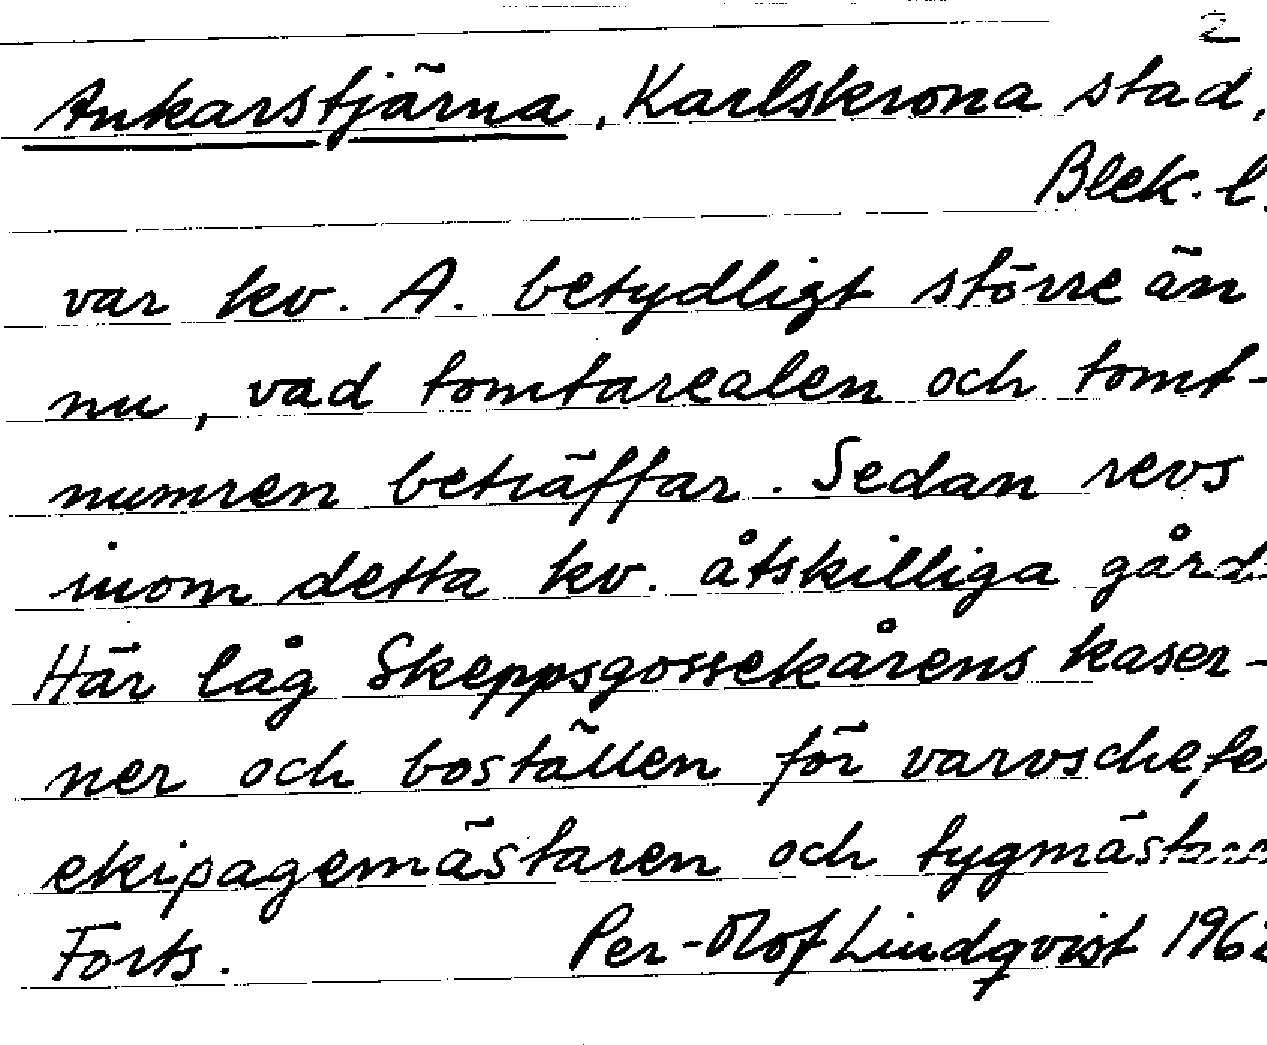 2
Ankarstjärna, Karlskrona stad,
Blek. l.
var kv. A. betydligt större än
nu, vad tomtarealen och tomt-
numren beträffar. Sedan revs
inom detta kv. åtskilliga gård
Här låg Skeppsgossekårens kaser-
ner och boställen för varvschefe
ekipagemästaren och tygmästar
Forts. Per-Olof Lindqvist 196